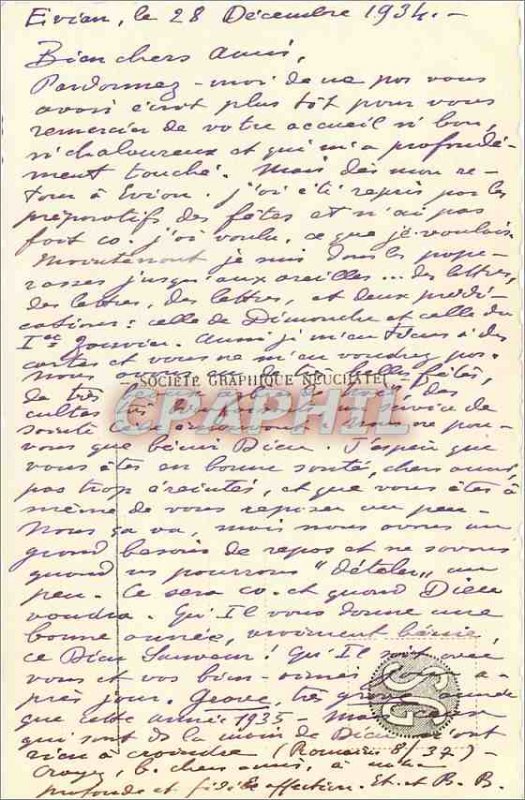 Evian, le 28 Décembre 1934. -
Bien chers amis,
Pardonnez-moi de ne pas vous
avoir écrit plus tôt pour vous
remercier de votre accueil si bon,
si chaleureux et qui m'a profondé-
ment touché. Mais dès mon re-
tour à Evian, j'ai été repris par les
préparatifs des fêtes et n'ai pas
fait ce. j'ai voulu, ce que je voulais.
Maintenant je suis dans les pape-
rasses jusqu'aux oreilles... des lettres,
des lettres, des lettres, et deux prédi-
cations: celle de Dimanche et celle du
Ier Janvier. Aussi je m'en tiens à des
cartes et vous ne m'en voudrez pas.
Nous avons eu de très belles fêtes,
SOCIÉTÉ GRAPHIQUE NEUCHATEL
de très des
cultes service de
CPAPHIL
sainte nous ne pou-
vons que bénir Dieu. J'espère que
vous êtes en bonne santé, chers amis,
pas trop éreintés, et que vous êtes à
même de vous reposer un peu -
Nous ça va, mais nous avons un
grand besoin de repos et ne savons
quand ns pourrons "dételer" un
peu. Ce sera co. et quand Dieu
voudra. Qu'Il vous donne une
bonne année, vraiment bénie,
ce Dieu Sauveur! Qu'Il soit avec
vous et vos bien-aimés jour a-
près jour. Grave, très grave
que cette année 1935 - Mais
qui sont de la main de Dieu n'ont
rien à craindre (Romains 8/37) -
Croyez, b. chers amis, à
profonde et fidèle affection. Et. et B. B.
SG